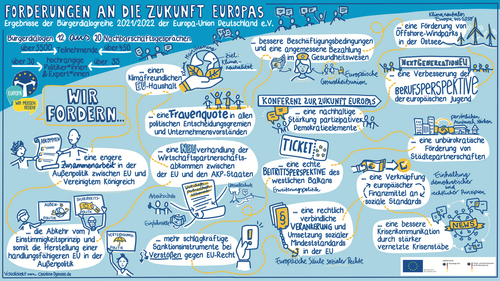 FORDERUNGEN AN DIE ZUKUNFT EUROPAS
Ergebnisse der Bürgerdialogreihe 2021/2022 der Europa-Union Deutschland e.V.
Bürgerdialogen 12 aus 20 Nachbarschaftsgesprächen
über 5500 Teilnehmende über 450
über 30 hochrangige Politiker*innen & Expert*innen über 35
EUROPA
WIR MÜSSEN REDEN!
WIR FORDERN...
... einen
klimafreundlichen
EU-Haushalt
Ziel:
Klima-
neutralität
bessere Beschäftigungsbedingungen
und eine angemessene Bezahlung
im Gesundheitswesen
Europäische
Gesundheitsunion
Klimaneutrales
Europa bis 2050
... eine Förderung von
Offshore-Windparks
in der Ostsee
NEXTGENERATIONEU
... eine Verbesserung der
BERUFSPERSPEKTIVE
der europäischen Jugend
... eine Frauenquote in allen
politischen Entscheidungsgremien
und Unternehmensvorständen
KONFERENZ ZUR ZUKUNFT EUROPAS
... eine nachhaltige
Stärkung partizipativer
Demokratieelemente
... eine unbürokratische
Förderung von
Städtepartnerschaften
ABKOMMEN
... eine engere
Zusammenarbeit in der
Außenpolitik zwischen EU und
Vereinigtem Königreich
... eine NEUverhandlung der
Wirtschaftspartnerschafts-
abkommen zwischen
der EU und den AKP-Staaten
TICKET:
... eine echte
BEITRITTSPERSPEKTIVE des
westlichen Balkans
Erweiterungspolitik
... eine Verknüpfung
europäischer
Finanzmittel an
soziale Standards
AUßEN-
POLITIK
SICHERHEITS-
POLITIK
VERTEIDIGUNGS-
POLITIK
... die Abkehr vom
Einstimmigkeitsprinzip und
somit die Herstellung einer
handlungsfähigeren EU in der
Außenpolitik
... mehr schlagkräftige
Sanktionsinstrumente bei
Verstößen gegen EU-Recht
§
... eine rechtlich
verbindliche
VERANKERUNG und
Umsetzung sozialer
Mindeststandards
in der EU
Europäische Säule sozialer Rechte
NEWS
... eine bessere
Krisenkommunikation
durch stärker
vernetzte Krisenstäbe